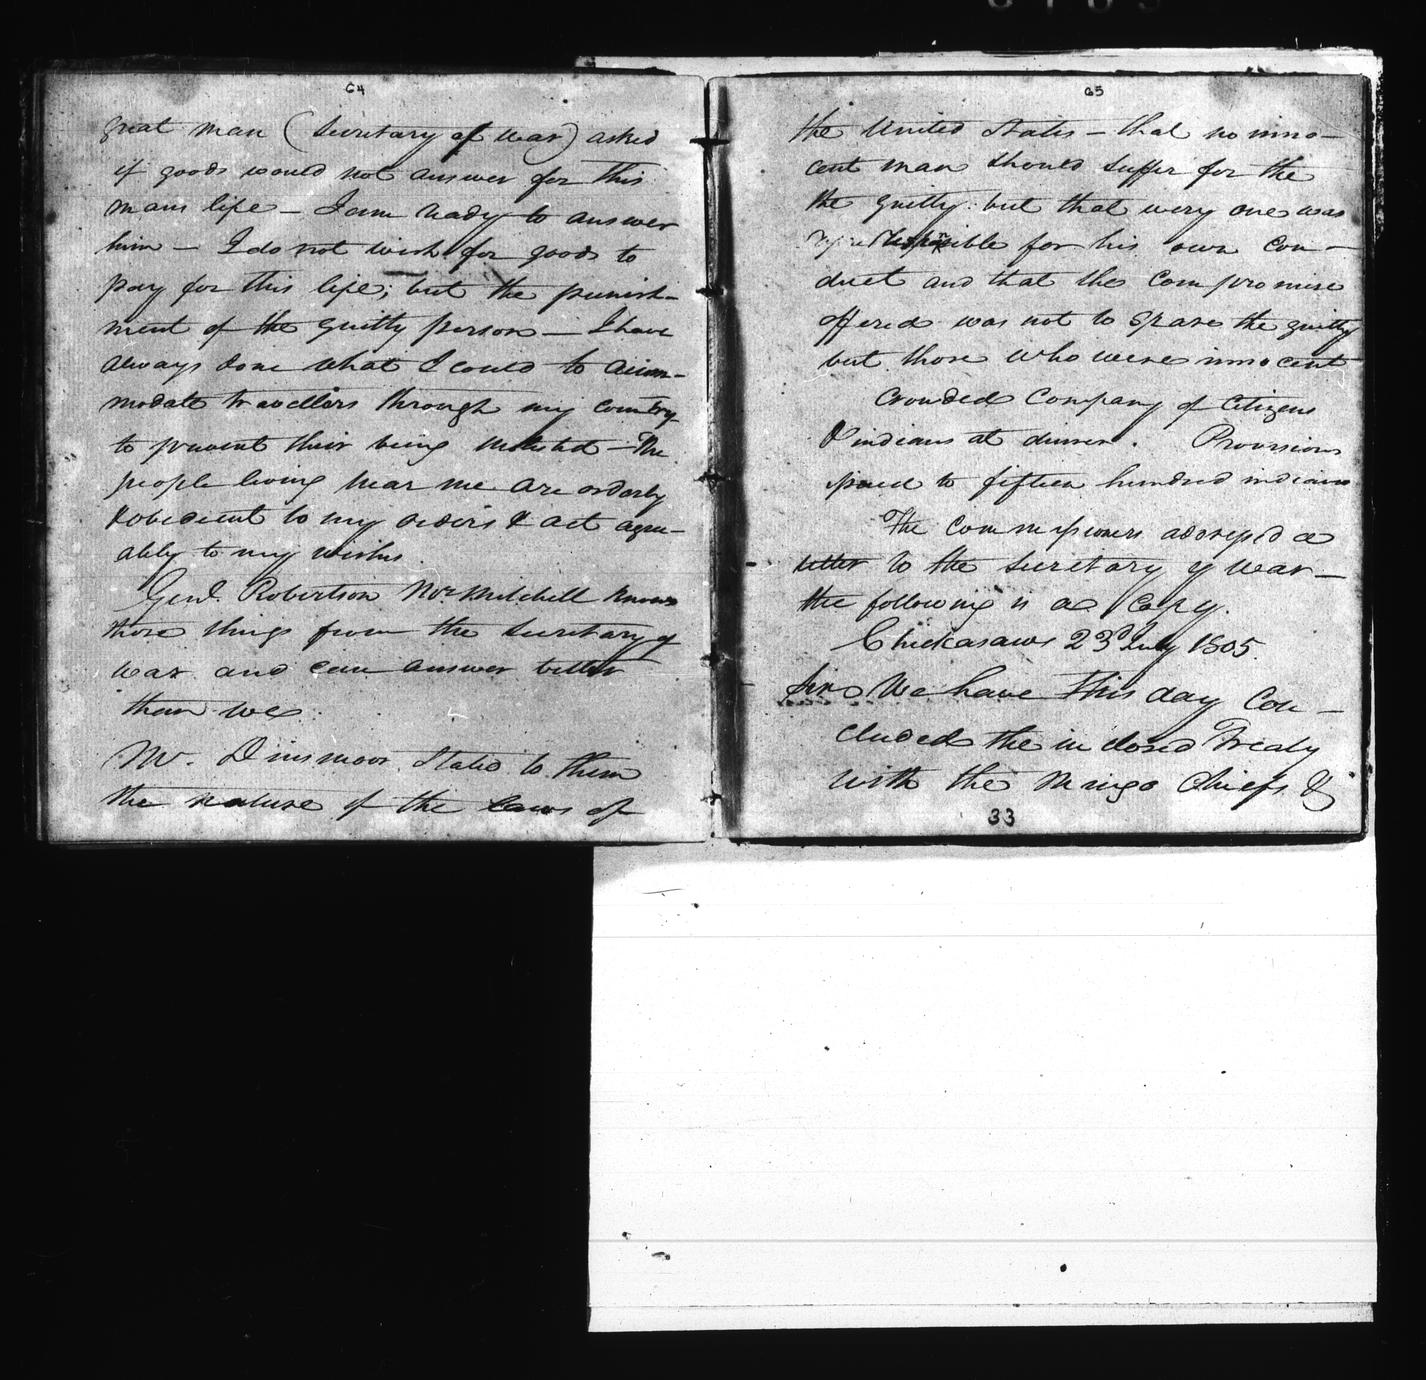 64
great man (Secretary of war) asked
if goods would not answer for this
mans life – I am ready to answer
him – I do not wish for goods to
pay for this life; but the punish-
ment of the guilty person – I have
always done what I could to accom-
modate travellers through my country
to prevent their being molested – The
people living near me are orderly
& obedient to my orders & act agree-
ably to my wishes
Genl. Robertson Mr. Mitchell knows
those things from the Secretary of
war and can answer better
than we
Mr. Dinsmoor Stated to them
the nature of the laws of
65
the United States – that no inno-
cent man should suffer for the
the guilty: but that every one was
responsible for his own con-
duct and that the compromise
offered was not to spare the guilty
but those who were innocent
Crowded Company of Citizens
& indians at dinner. Provisions
issued to fifteen hundred indians
The commissioners addressed a
letter to the Secretary of war –
the following is a copy.
Chickasaws 23d July 1805.
Sir We have this day Con-
cluded the inclosed Treaty
with the Mingo Chiefs &
33